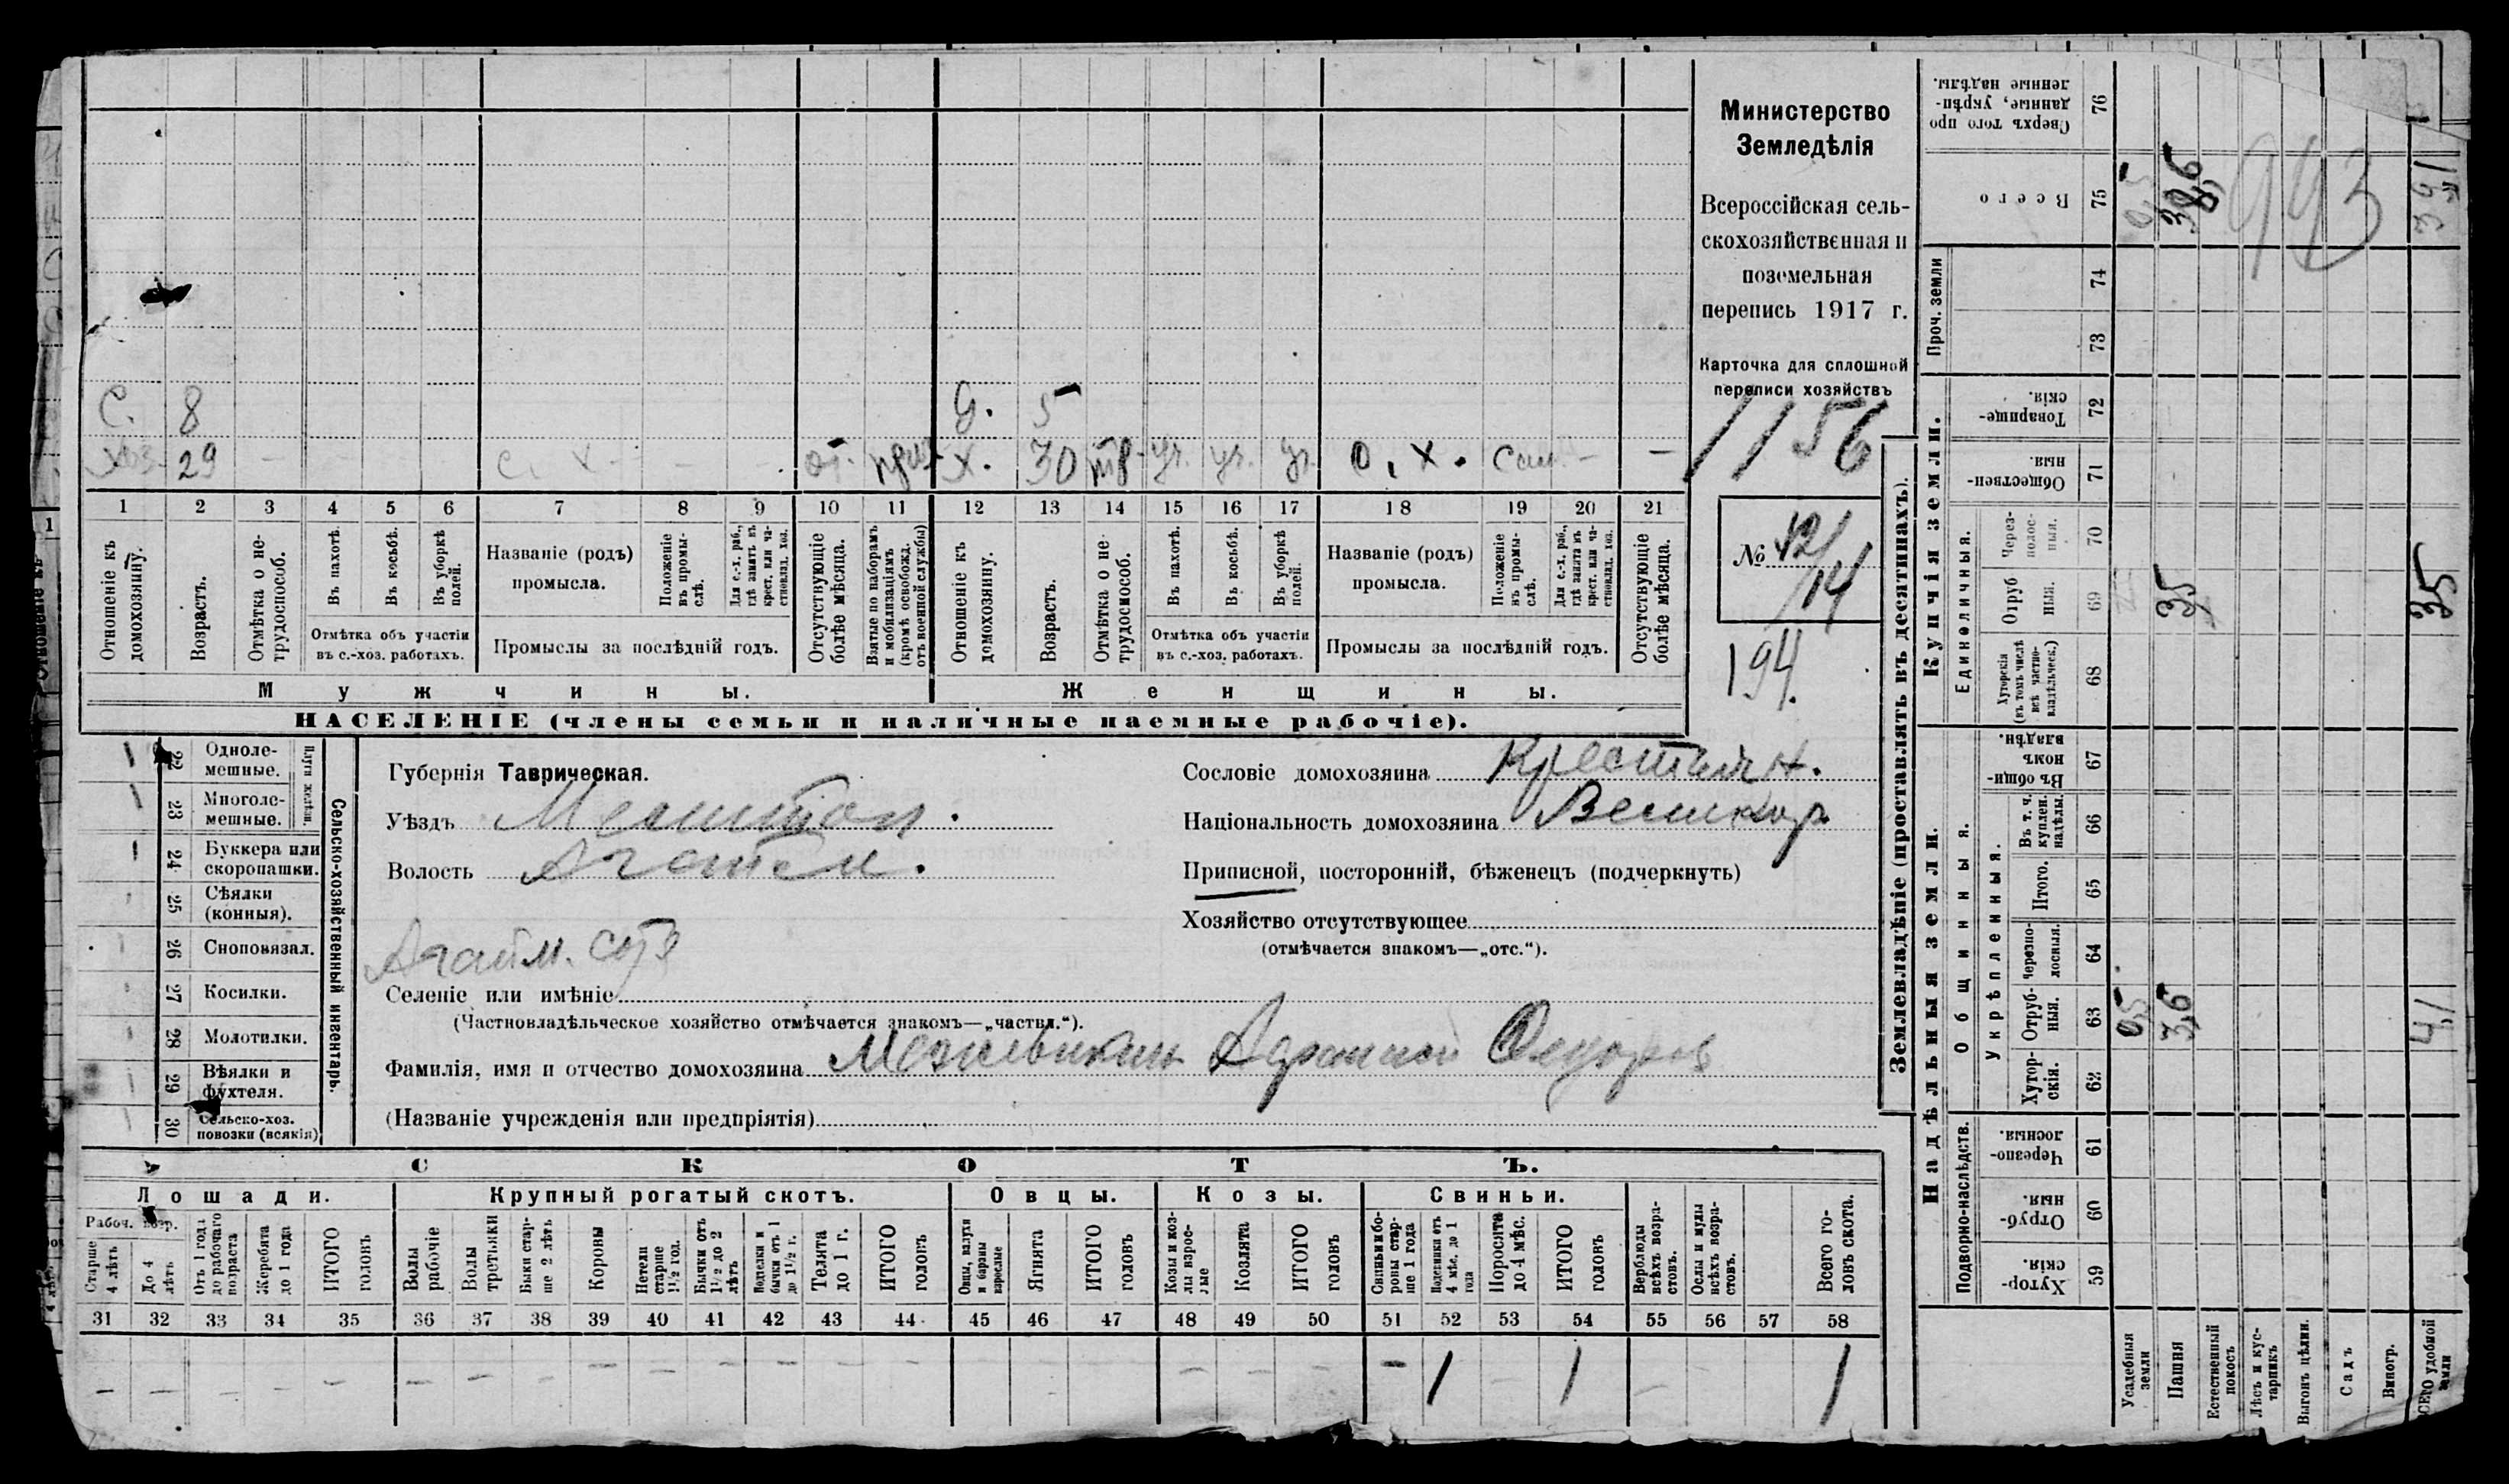 Министерство
Земледѣлія
Всероссійская сель-
скохозяйственная и
поземельная
перепись 1917 г.
Карточка для сплошной
переписи хозяйствъ
1156
№ 12/14
194.
С. 8
хоз. 29 — с. х. — от. приз.
д. 5
х. 30 тр. уч. уч. уч. с. х. сам. — —
1 2 3 4 5 6 7 8 9 10 11 12 13 14 15 16 17 18 19 20 21
Отношеніе къ домохозяину.
Возрастъ.
Отмѣтка о не-трудоспособ.
Въ пахотѣ.
Въ косьбѣ.
Въ уборкѣ полей.
Отмѣтка объ участіи въ с.-хоз. работахъ.
Названіе (родъ) промысла.
Положеніе въ промы-слѣ.
Для с.-х. раб., гдѣ занятъ въ крест. или ча-стновлад. хоз.
Промыслы за послѣдній годъ.
Отсутствующіе болѣе мѣсяца.
Взятые по наборамъ и мобилизаціямъ (кромѣ освобожд. отъ военной службы)
Отношеніе къ домохозяину.
Возрастъ.
Отмѣтка о не трудоспособ.
Въ пахотѣ.
Въ косьбѣ.
Въ уборкѣ полей.
Отмѣтка объ участіи въ с.-хоз. работахъ.
Названіе (родъ) промысла.
Положеніе въ промы-слѣ.
Для с.-х. раб., гдѣ занята въ крест. или ча-стновлад. хоз.
Промыслы за послѣдній годъ.
Отсутствующіе болѣе мѣсяца.
Мужчины.
Женщины.
НАСЕЛЕНІЕ (члены семьи и наличные наемные рабочіе).
22 Одноле-мешные.
23 Многоле-мешные.
Плуги желѣзн.
24 Буккера или скоропашки.
25 Сѣялки (конныя).
26 Сноповязал.
27 Косилки.
28 Молотилки.
29 Вѣялки и фухтеля.
30 Сельско-хоз. повозки (всякія)
Сельско-хозяйственный инвентарь.
Губернія Таврическая.
Уѣздъ Мелитоп.
Волость
Агайм.
Селеніе или имѣніе
(Частновладѣльческое хозяйство отмѣчается знакомъ—„частвл.“).
Фамилія, имя и отчество домохозяина
(Названіе учрежденія или предпріятія)
Сословіе домохозяина Крестьян.
Національность домохозяина Великор.
Приписной, посторонній, бѣженецъ (подчеркнуть)
Хозяйство отсутствующее
(отмѣчается знакомъ—„отс.“).
СКОТЪ.
Лошади.
Крупный рогатый скотъ.
Овцы.
Козы.
Свиньи.
Рабоч. возр.
Старше 4 лѣтъ
До 4 лѣтъ
Отъ 1 года до рабочаго возраста
Жеребята до 1 года
ИТОГО головъ
Волы рабочіе
Волы третьяки
Быки стар-ше 2 лѣтъ
Коровы
Нетели старше 1½ год.
Бычки отъ 1½ до 2 лѣтъ
Подтелки и бычки отъ 1 до 1½ г.
Телята до 1 г.
ИТОГО головъ
Овцы, валухи и бараны взрослые
Ягнята
ИТОГО головъ
Козы и коз-лы взрос-лые
Козлята
ИТОГО головъ
Свиньи и бо-ровы стар-ше 1 года
Подсвинки отъ 4 мѣс. до 1 года
Поросята до 4 мѣс.
ИТОГО головъ
Верблюды всѣхъ возра-стовъ.
Ослы и мулы всѣхъ возра-стовъ.
Всего го-ловъ скота.
31 32 33 34 35 36 37 38 39 40 41 42 43 44 45 46 47 48 49 50 51 52 53 54 55 56 57 58
— 1 — 1 — 1
Землевладѣніе (проставлять въ десятинахъ).
Надѣльныя земли.
Купчія земли.
Проч. земли
Подворно-наслѣдств.
Общинныя.
Укрѣпленныя.
Единоличныя.
Хутор-скія. 59
Отруб-ныя. 60
Черезпо-лосныя. 61
Хутор-скія. 62
Отруб-ныя. 63
Черезпо-лосныя. 64
Итого. 65
Въ т. ч. куплен. надѣлы. 66
Въ общин-номъ владѣн. 67
Хуторскія (въ томъ числѣ всѣ частно-владѣльческ.) 68
Отруб ныя. 69
Через-полос-ныя. 70
Обществен-ныя. 71
Товарище-скія. 72
73
74
Всего 75
Сверхъ того про данные, укрѣп-ленные надѣлы. 76
Усадебныя земли
Пашня
Естественный покосъ
Лѣсъ и кус-тарникъ
Выгонъ цѣлин.
Садъ
Виногр.
ВСЕГО удобной земли
0,5
3,6
4,1
35
35
0,5
943
39,1